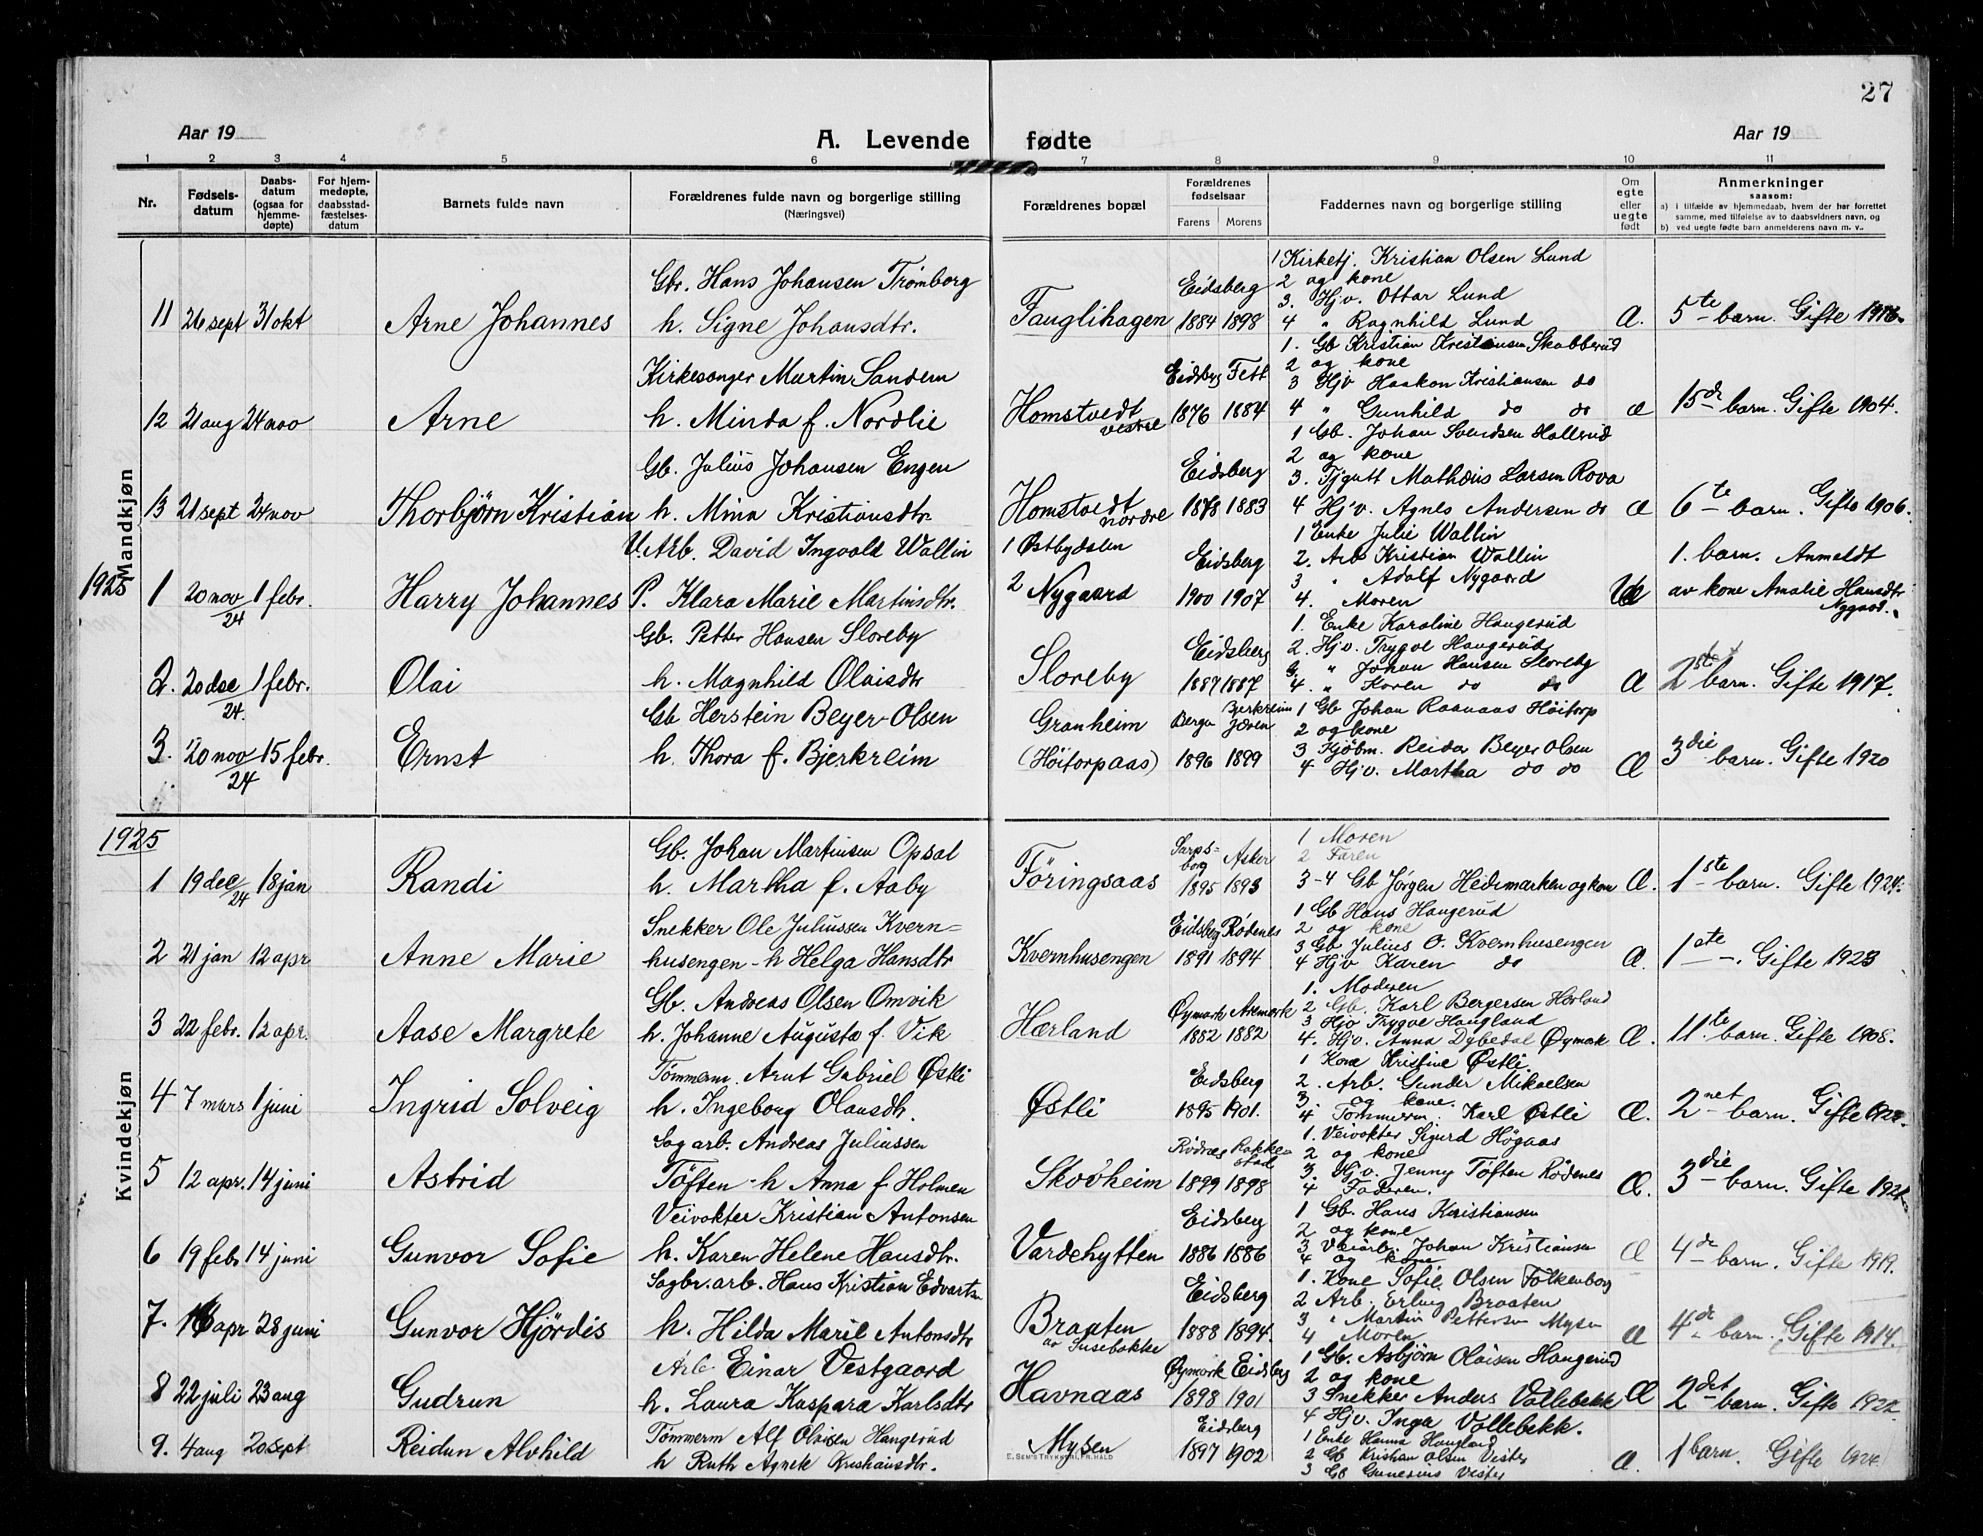 27
Aar 19
A. Levende fødte
Aar 19
1 2 3 4 5 6 7 8 9 10 11
Nr.
Fødsels-
datum
Daabs-
datum
(ogsaa for
hjemme-
døpte)
For hjem-
medøpte,
daabsstad-
fæstelses-
datum
Barnets fulde navn
Forældrenes fulde navn og borgerlige stilling
(Næringsvei)
Forældrenes bopæl
Forældrenes
fødselsaar
Farens Morens
Faddernes navn og borgerlige stilling
Om
egte
eller
uegte
født
Anmerkninger
saasom:
a) i tilfælde av hjemmedaab, hvem der har forrettet
samme, med tilføielse av to daabsvidners navn, og
b) ved uegte fødte barn anmelderens navn m. v..
Mandkjøn
11 26 sept 31 okt Arne Johannes
Gbr. Hans Johansen Trømborg
h. Signe Johansdtr.
Fauglihagen
Eidsberg
1884 1898
1 Kirketj. Kristian Olsen Lund
2 og kone
3. Hjv. Ottar Lund
4 " Ragnhild Lund
Æ. 5te barn. Gifte 1916.
12 21 aug 24 nov Arne
Kirkesanger Martin Sandem
h. Minda f. Nordlie
Homstvedt
vestre
Eidsberg Fett
1876 1884
1. Gb Kristian Kristiansen Skabberud
2 og kone
3 Hjv Haakon Kristiansen do
4 " Gunhild do do
Æ 15de barn. Gifte 1904.
13 21 sept 24 nov Thorbjørn Kristian
Gb. Julius Johansen Engen
h. Mina Kristiansdtr.
Homstvedt
nordre
Eidsberg
1878 1883
1 Gb. Johan Svendsen Hallerud
2 og kone
3. Tjgutt Mathæus Larsen Rova
4 Hjv. Agnes Andersen do
Æ 6te barn. Gifte 1906.
1925 1 20 nov/24 1 febr. Harry Johannes
U. Arb. David Ingvald Wallin
P. Klara Marie Martinsdtr.
1 Østbydalen
2 Nygaard
Eidsberg
1900 1907
1 Enke Julie Wallin
2. Arb Kristian Wallin
3 " Adolf Nygaard
4. Moren
1. barn. Anmeldt
av kone Amalie Hansdtr
Nygaard.
2. 20 dec/24. 1 febr. Olai
Gb. Petter Hansen Sloreby
h. Magnhild Olaisdtr
Sloreby
Eidsberg
1889 1887
1. Enke Karoline Haugerud
2. Hjv. Trygve Haugerud
3. " Johan Hansen Sloreby
4. " Karen do do
Æ 2 barn. Gifte 1917.
3. 20 nov/24 15 febr. Ernst
Gb Herstein Beyer-Olsen
h. Thora f. Bjerkreim
Granheim
(Høitorpaas)
Bergen Bjerkreim
Jæren
1896 1899
1 Gb Johan Raanaas Høitorp
2 og kone
3 Kjøbm. Reidar Beyer Olsen
4 Hjv. Martha do do
Æ 3die barn. Gifte 1920
1925
Kvindekjøn
1 19 dec/24 18 jan Randi
Gb. Johan Martinsen Opsal
h. Martha f. Aaby
Föringsaas
Sarps-
borg Asker
1895 1893
1 Moren
2 Faren
3-4 Gb Jørgen Hedemarken og kone
Æ. 1ste barn. Gifte 1924.
2 21 jan 12 apr Anne Marie
Snekker Ole Juliussen Kvern=
husengen - h Helga Hansdtr
Kvernhusengen
Eidsberg Rødenes
1891 1894
1 Gb Hans Haugerud
2 og kone
3 Gb Julius O. Kvernhusengen
4 Hjv Karen do
Æ. 1ste -. Gifte 1923
3 22 febr. 12 apr. Aase Margrete
Gb. Andreas Olsen Omvik
h. Johanne Augusta f. Vik
Hærland
Øymark Aremark
1882 1882
1. Moderen
2 Gb. Karl Bergersen Hærland
3 Hjv Trygve Haugland
4. Hjv. Anna Dybedal Øymark
Æ. 11te barn. Gifte 1908.
4 7 mars 1 juni Ingrid Solveig
Tømmerm. Arnt Gabriel Østli
h. Ingeborg Olausdtr.
Østli
Eidsberg
1895 1901.
1 Kone Kristine Østli
2. Arb. Gunder Mikaelsen
3. og kone.
4 Tømmerm. Karl Østli
Æ. 2net barn. Gifte
5 12 apr. 14 juni Astrid
Sagarb. Andreas Juliussen
Töften - h Anna f Holmen
Skovheim
Rödnes Rakke-
stad
1899 1898
1. Veivokter Sigurd Högaas
2 og kone
3. Hjv. Jenny Töften Rödenes
4. Faderen.
Æ. 3die barn. Gifte
6 19 febr 14 juni Gunvor Sofie
Veivokter Kristian Antonsen
h. Karen Helene Hansdtr.
Vardehytten
Eidsberg
1886 1886
1 Gb. Hans Kristiansen
2 og kone
3 Veiarb. Johan Kristiansen
4 og kone
Æ 4de barn. Gifte 1919.
7. 16 apr 28 juni Gunvor Hjördis
Sagbr.arb. Hans Kristian Edvartsen
h. Hilda Marie Antonsdtr
Braaten
av Susebakke
Eidsberg
1888 1894.
1. Kone Sofie Olsen Folkenborg
2 Arb. Erling Braaten
3 " Martin Pettersen Mysen
4 Moren
Æ 4de barn. Gifte 1914.
8 22 juli 23 aug Gudrun
Arb Einar Vestgaard
h. Laura Kaspara Karlsdtr
Havnaas
Øymark Eidsberg
1898 1901
1 Gb. Asbjørn Olaisen Haugerud
2 og kone
3 Snekker Anders Vollebekk
4 Hjv. Inga Vollebekk.
Æ 2det barn. Gifte 1922.
9. 4 aug 20 sept Reidun Alvhild
Tømmerm Alf Olaisen Haugerud
h Ruth Agnete Kristiansdtr.
Mysen
Eidsberg
1897 1902
1 Enke Hanna Haugland
2 Gb Kristian Olsen Vister
3 Gb Gunerius Vister
Æ. 1 barn. Gifte 1924
E. SEM'S TRYKKERI, FR.HALD